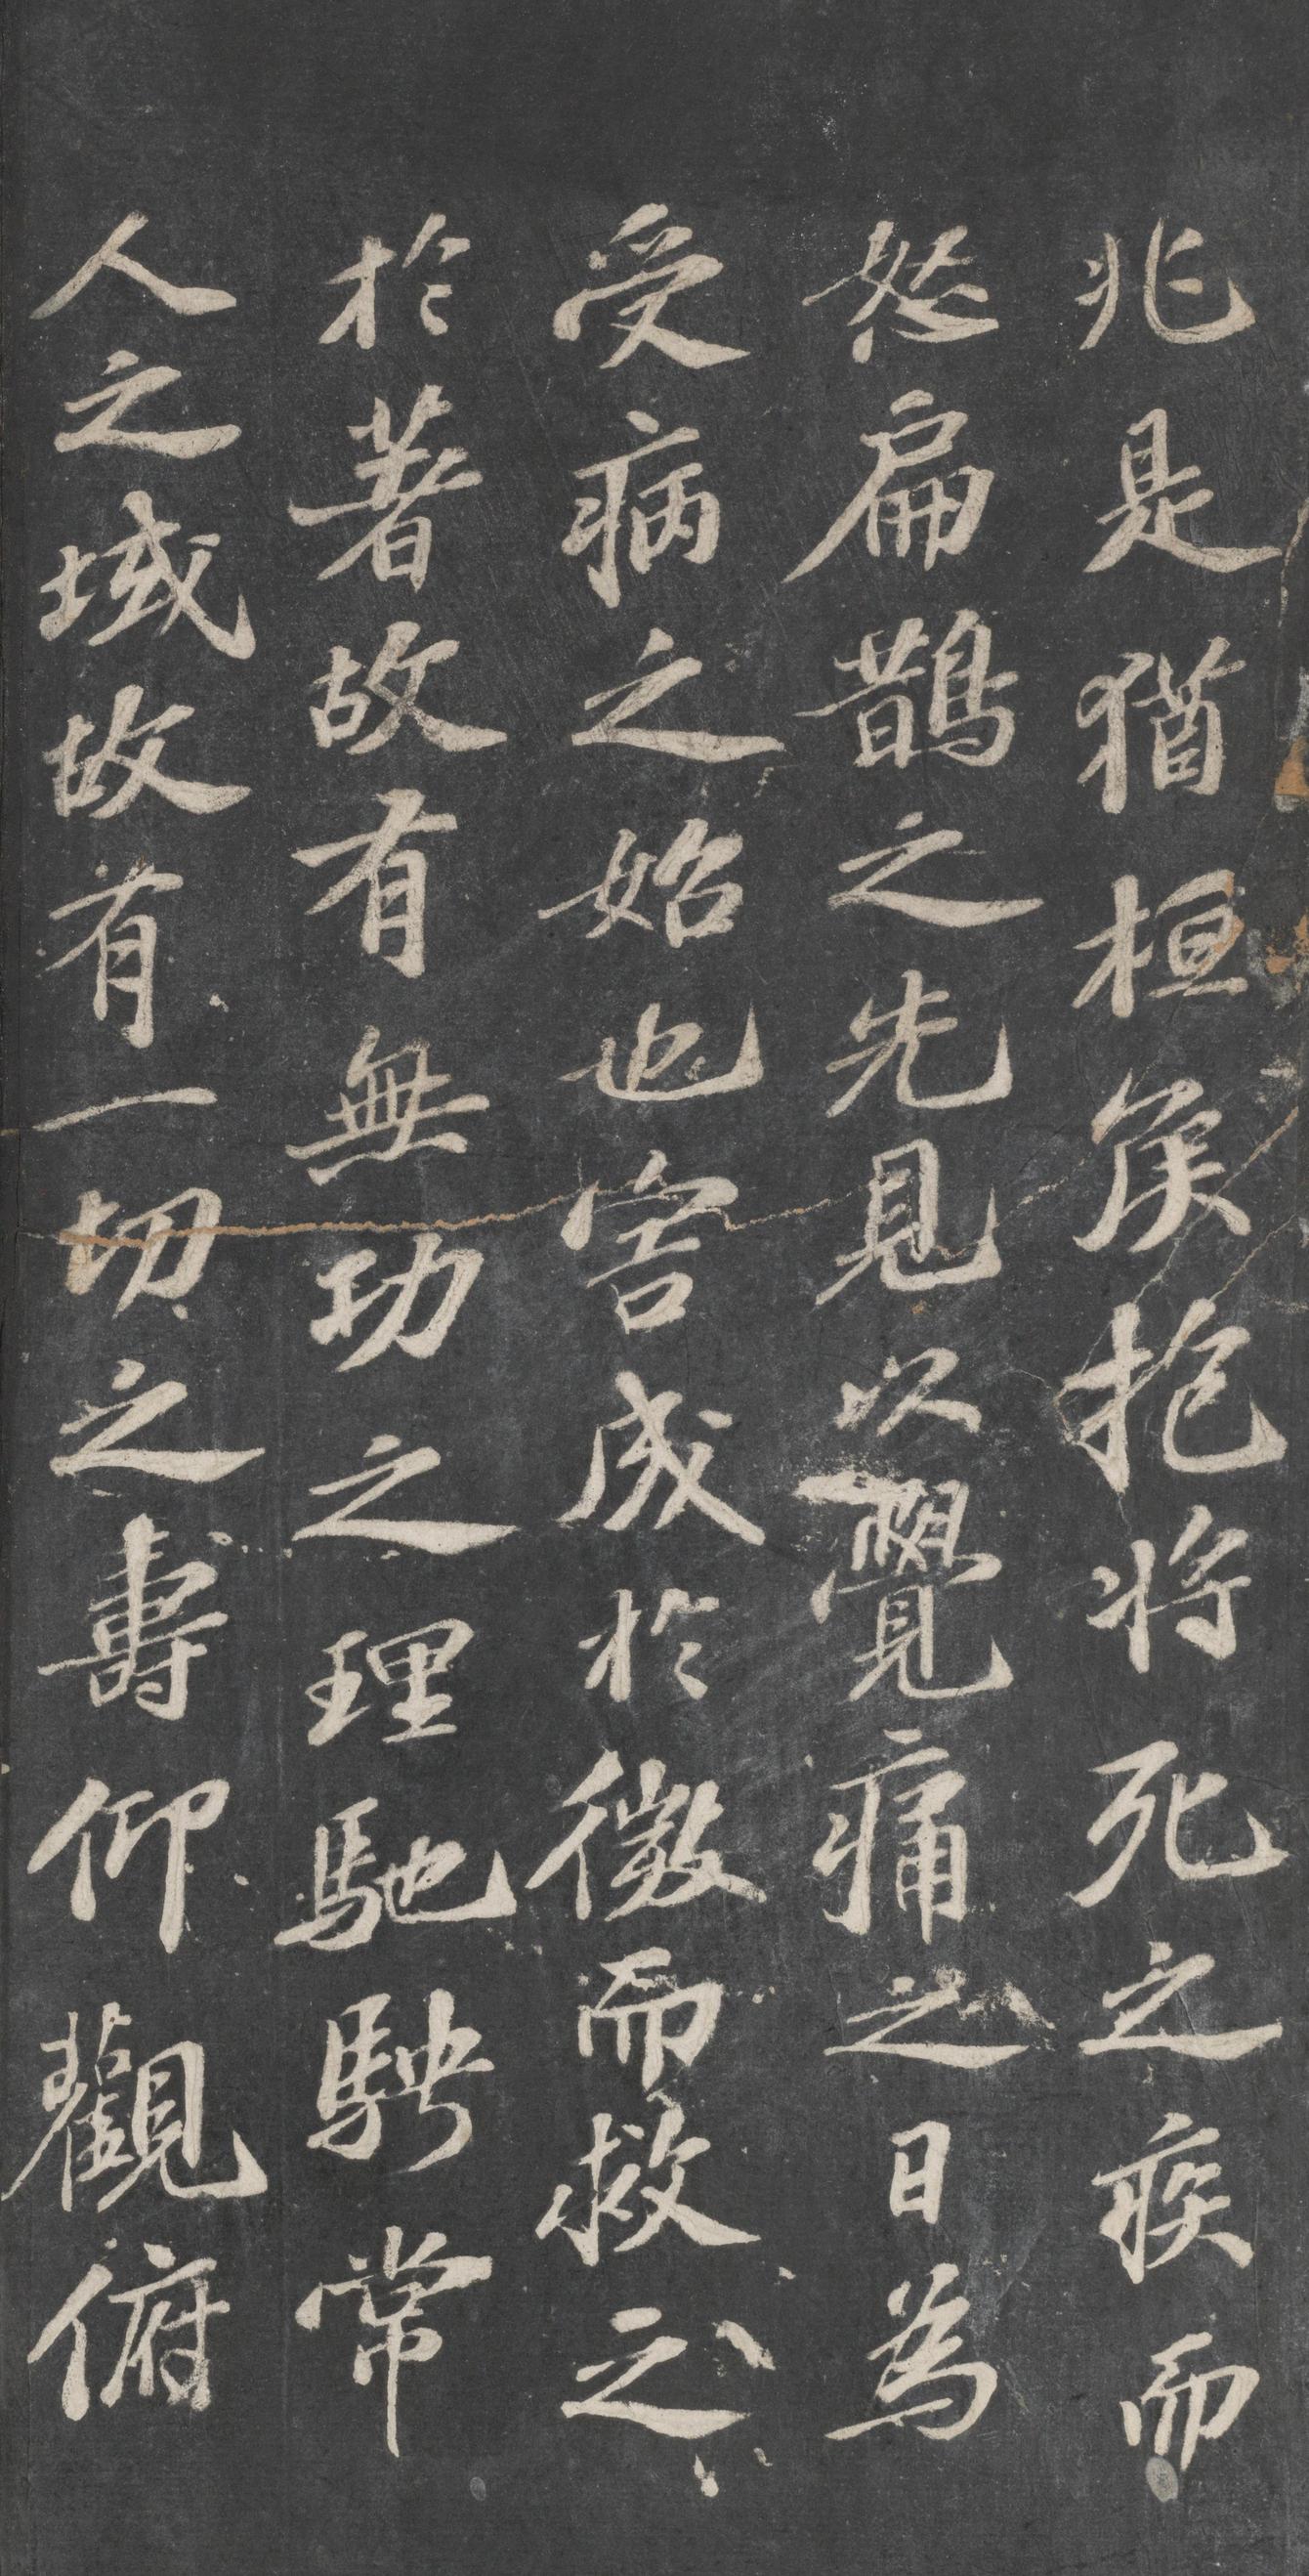 兆是猶桓侯抱将死之疾而
怒扁鵲之先見以覺痛之日為
受病之始也害成於微而救之
於著故有無功之理馳騁常
人之域故有一切之壽仰觀俯